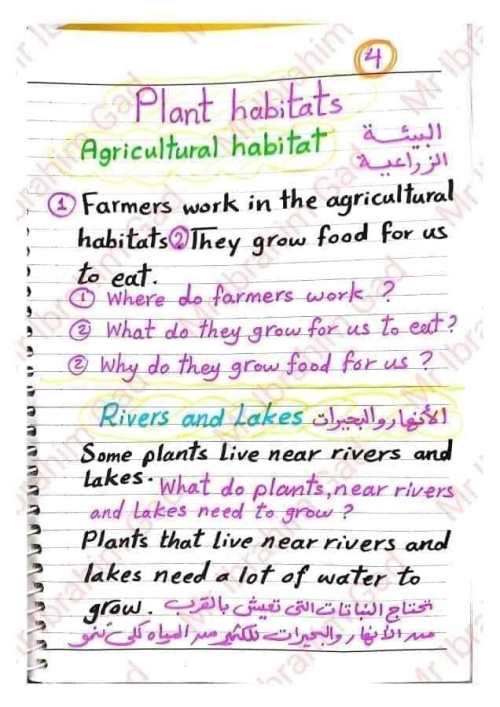 4
Plant habitats
Agricultural habitat البيئة
الزراعية
① Farmers work in the agricultural
habitats ② They grow food for us
to eat.
① Where do farmers work ?
② What do they grow for us to eat ?
② Why do they grow food for us ?
Rivers and Lakes الأنهار والبحيرات
Some plants live near rivers and
Lakes. What do plants, near rivers
and Lakes need to grow ?
Plants that live near rivers and
lakes need a lot of water to
grow. تحتاج النباتات التى تعيش بالقرب
من الأنهار والبحيرات للكثير من المياه كى تنمو
Mr Ibrahim Gad